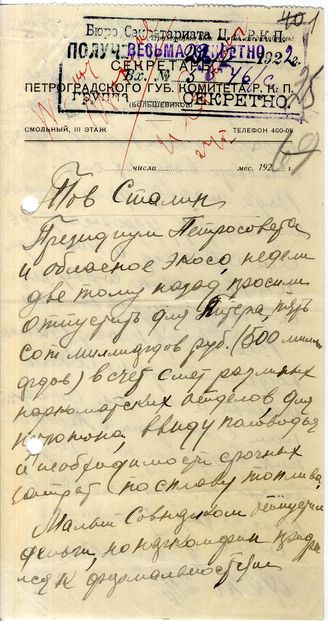 401
Бюро Секретариата Ц.К.Р.К.П.
ВЕСЬМА
СЕКРЕТАРЬ
1922 г.
Вх. №
ПЕТРОГРАДСКОГО ГУБ. КОМИТЕТА Р. К. П.
(БОЛЬШЕВИКОВ)
СЕКРЕТНО.
25
СМОЛЬНЫЙ, III ЭТАЖ
ТЕЛЕФОН 400-09
числа мес. 192 г.
Тов Сталин
Президиум Петросовета
и областное экосо, недели
две тому назад просили
отпустить для Питера, пять
сот миллиардов руб. (500 милли
ардов) в счет смет разных
наркоматских отделов для
ввиду половодья
и необходимости срочных
затрат по сплаву топлива,
Малый Совнарком отпустил
деньги, но наркомфин
к формальностям